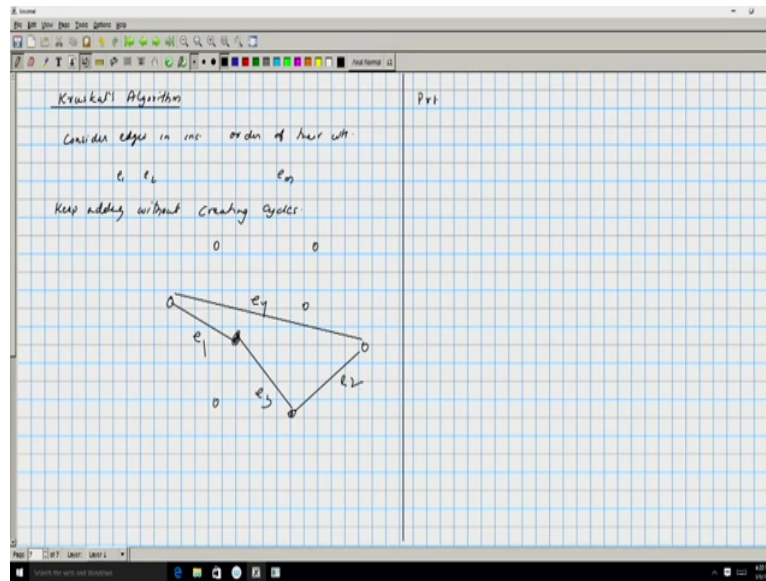 Journal
File Edit View Page Tools Options Help
Kruskal's Algorithm
Consider edges in inc. order of their wth.
e1 e2 em
Keep adding without creating cycles.
e4
e1
e2
e3
Pri
Page 7 of 7 Layer: Layer 1
Search the web and Windows